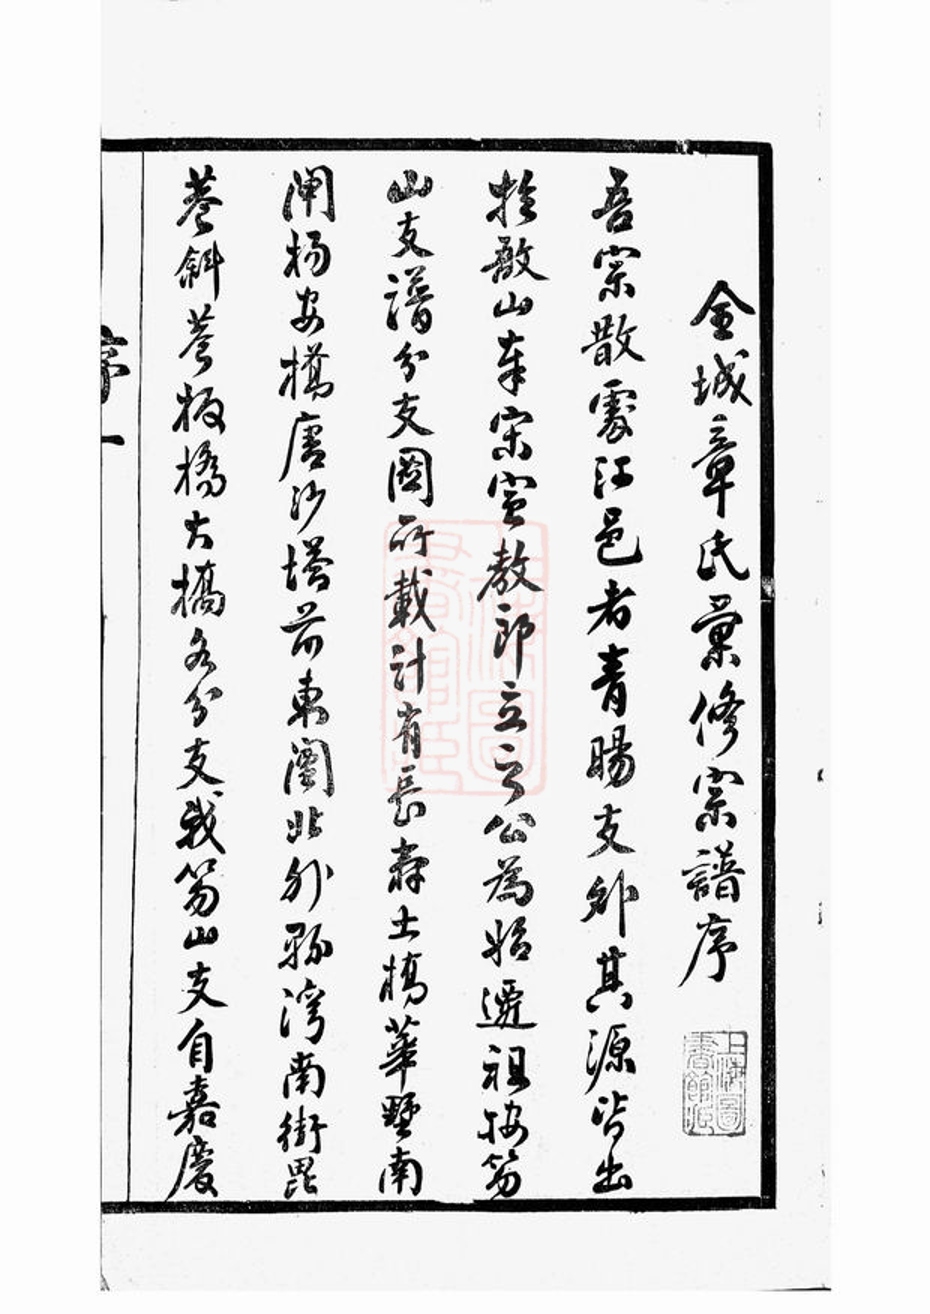 金城章氏彙修宗譜序
吾宗散處江邑者青暘支外其源皆出
於敔山本宋宣教郎立之公為始遷祖按笏
山支譜分支圖所載計有長壽土橋華墅南
閘楊安橋唐沙塔前東閣北外孫灣南街毘
巷斜巷板橋大橋各分支我笏山支自嘉慶
序 一
上海圖書館藏